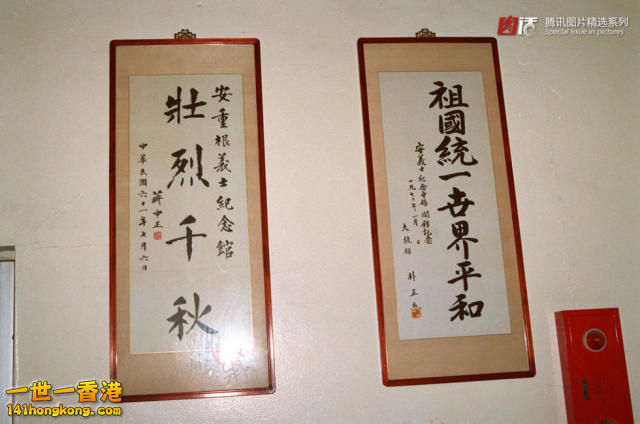 安重根義士紀念館
壯烈千秋
蔣中正
中華民國六十一年七月六日
祖國統一世界平和
安義士紀念館開館記念
一九七〇年 月 日
大統領 朴正熙
肉活
腾讯图片精选系列
Special issue in pictures
一世一香港
141hongkong.com